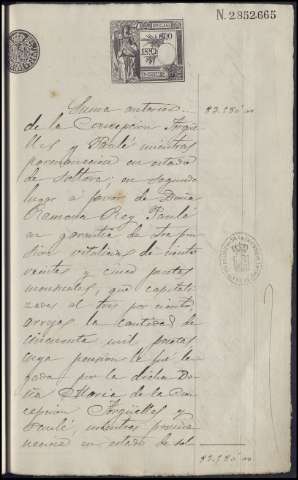 N. 2852665
Suma anterior
de la Concepcion Argüe
lles y Paulé mientras
permanezca en estado
de soltera; en segundo
lugar á favor de Doña
Ramona Rey Paulé
en garantia de otra pen
sion vitalicia de ciento
veinte y cinco pesetas
mensuales, que capitali
zadas al tres por ciento
arrojan la cantidad de
cincuenta mil pesetas
cuya pension le fué le
gada por la dicha Do
ña Maria de la Con
cepcion Argüelles y
Paulé mientras perma
nezca en estado de sol-